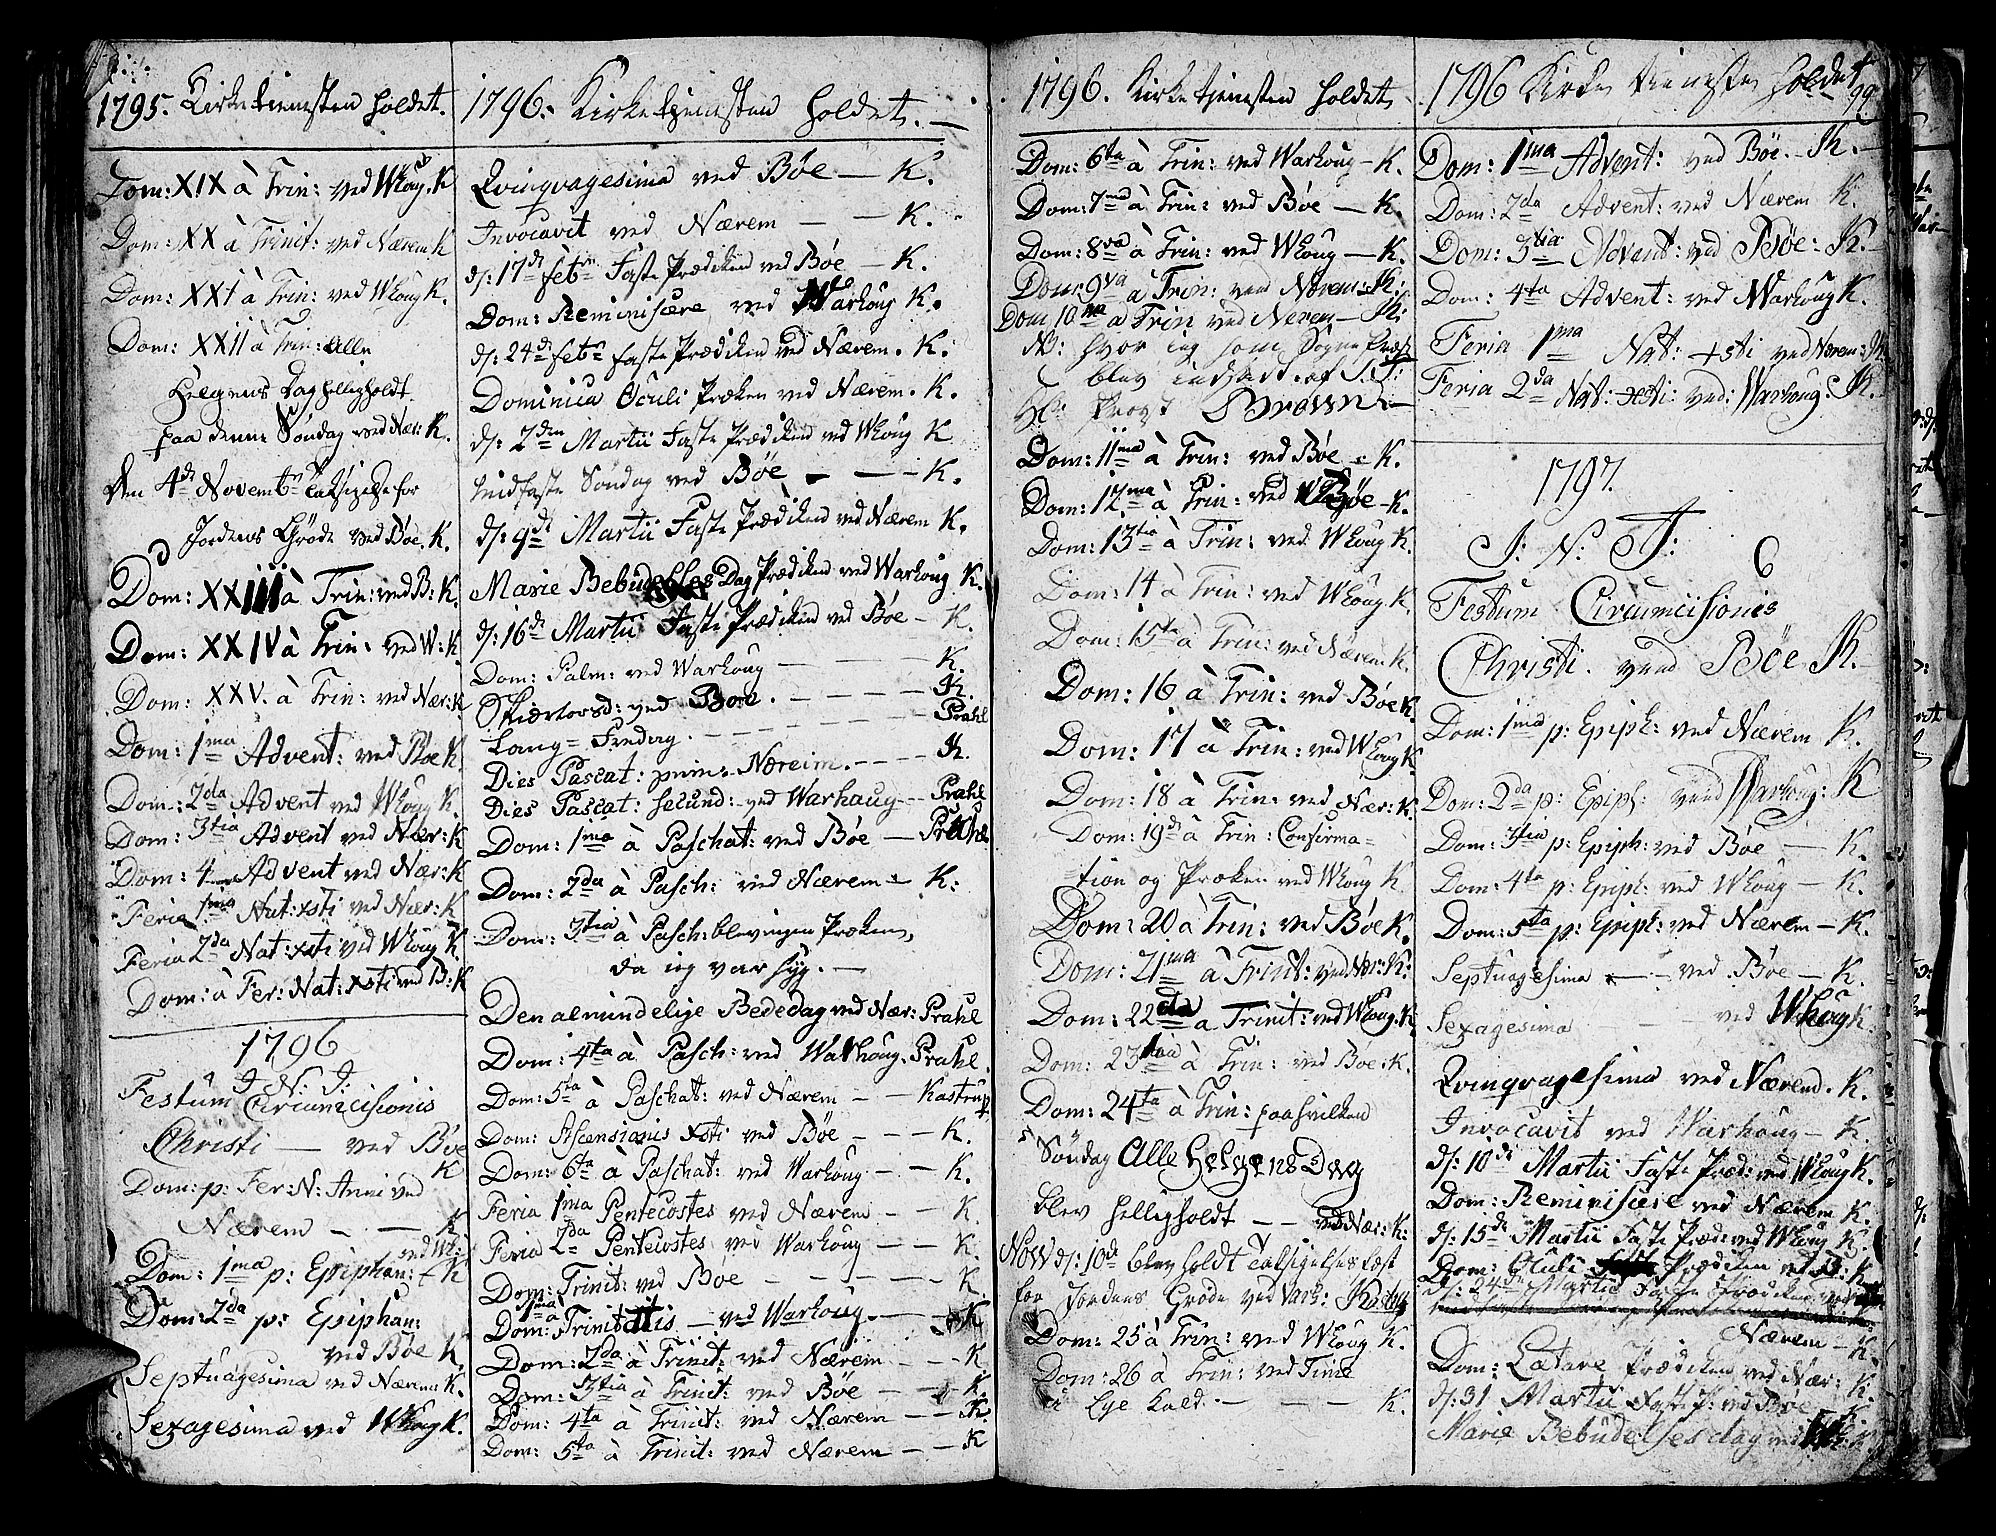 1795. Kirketienesten holdet.
Dom: XIX à Trin: ved Whoug. K
Dom: XX à Trinit: ved Nærem K
Dom: XXI à Trin: ved Whoug K.
Dom: XXII à Trin: Alle
Helgens Dag helligholdt
paa denne Søndag ved Nær: K.
Den 4de Novembr Taksigelse for
Jordens Grøde ved Bøe. K.
Dom: XXIII à Trin: ved B: K.
Dom: XXIV à Trin: ved W: K.
Dom: XXV. à Trin: ved Nær: K
Dom: 1ma Advent: ved Bøe K
Dom: 2da Advent ved Whoug K.
Dom: 3tia Advent ved Nær: K
Dom: 4 Advent ved Nær: K
Feria 1ma Nat: xsti ved Nær: K
Feria 2da Nat: xsti ved Whoug K.
Dom: à Fer: Nat: xsti ved B: K
1796
J. N. J:
Festum Circumcisionis
Christi — ved Bøe
K
Dom: p: Fer: N: Anni ved
Nærem — — K
ved Wh:
Dom: 1ma p: Epiphan: — K
Dom: 2da p: Epiphan:
ved Bøe K.
Septuagesima ved Nærem K.
Sexagesima ved Whoug K.
1796. Kirketjenesten holdet.—
Qvinqvagesima ved Bøe — K.
Invocavit ved Nærem — — K.
d: 17de febr: Faste Prædiken ved Bøe — K.
Dom: Reminiscere ved Warhoug K.
d: 24de febr Faste Prædiken ved Nærem. K.
Dominica Oculi Præken ved Nærem. K.
d: 2den Martii Faste Prædiken ved Whoug K
Midfaste Søndag ved Bøe — — K.
d: 9de Martii Faste Prædiken ved Nærem K.
Marie Bebudelses Dag Prædiken ved Warhoug K.
d: 16de Martii Faste Prædiken ved Bøe — K.
Dom: Palm: ved Warhoug — — — K.
Skiærtorsd: ved Bøe. — — — K.
Lang=Fredag. — — — Prahl
Dies Pascat: prim: Næreim. — — K.
Dies Pascat: secund: ved Warhaug — Prahl
Dom: 1ma à Paschat: ved Bøe — Prahl
Dom: 2da à Pasch: ved Nærem — K.
Dom: 3tia à Pasch: blev ingen Præken,
da ieg var syg. —
Den almindelige Bededag ved Nær: Prahl
Dom: 4ta à Pasch: ved Warhoug. Prahl.
Dom: 5ta à Paschat: ved Nærem — — Kastrup
Dom: Ascensionis xsti ved Bøe — — K.
Dom: 6ta à Paschat: ved Warhoug — — K.
Feria 1ma Pentecostes ved Nærem — — K.
Feria 2da Pentecostes ved Warhoug — — K.
Dom: Trinit: ved Bøe — — — — K
Dom: 1ma à Trinitatis — ved Warhoug. — K
Dom: 2da à Trinit: ved Nærem — — K
Dom: 3tia à Trinit: ved Bøe — — K.
Dom: 4ta à Trinit: ved Nærem — — K.
Dom: 5ta à Trinit: ved Nærem — — K
1796. Kirketjenesten holdet
Dom: 6ta à Trin: ved Warhoug — K.
Dom: 7ma à Trin: ved Bøe — K.
Dom: 8va à Trin: ved Whoug — K.
Dom: 9va à Trin: ved Nærem — K:
Dom 10ma a Trin ved Nærem — K:
NB: hvor ieg som Sogne Præst
blev indsadt af S: T:
Hr: Provst Brown —
Dom: 11ma à Trin: ved Bøe — K.
Dom: 12ma à Trin: ved Bøe — K.
Dom: 13tia à Trin: ved Whoug K.
Dom: 14 à Trin: ved Whoug. K.
Dom: 15ta à Trin: ved Nærem K.
Dom: 16 à Trin: ved Bøe K.
Dom: 17 à Trin: ved Whoug K.
Dom: 18 à Trin: ved Nær: K.
Dom: 19de à Trin: Confirma=
=tion og Præken ved Whoug K.
Dom: 20 à Trin: ved Bøe K.
Dom: 21ma à Trint: ved Nær: K:
Dom: 22da a Trinit: ved Whoug. K.
Dom: 23tia à Trin: ved Bøe: K.
Dom: 24ta à Trin: paa hvilken
Søndag Alle Helgens Dag
blev helligholdt — — ved Nær: K:
Nov d: 10de blev holdt Taksigelsesfæst
for Jordens Grøde ved Varh:
Dom: 25 à Trin: ved Whoug K.
Dom: 26 à Trin: ved Time
i Lye Kald. — — — K.
1796 Kirke tieneste holdet
99
Dom: 1ma Advent: ved Bøe. — K. —
Dom: 2da Advent: ved Nærem K.
Dom: 3tia Advent: ved Bøe: K. —
Dom: 4ta Advent: ved Warhoug K.
Feria 1ma Nat: xsti ved Nærem: K
Feria 2da Nat: xsti: ved: Warhoug: K.
1797.
J: N: J:
Festum Circumcisionis
Christi. ved Bøe K. —
Dom: 1ma p: Epiph: ved Nærem K.
Dom: 2da p: Epiph: ved Warhoug: K
Dom: 3tia p: Epiph: ved Bøe — K.
Dom: 4ta p: Epiph: ved Whoug — K.
Dom: 5ta p: Epiph: ved Nærem — K.
Septuagesima — — ved Bøe — K.
Sexagesima — — ved Whoug K.
Qvinqvagesima ved Nærem. K.
Invocavit ved Warhoug — K.
d: 10de Martii Faste Præd: ved Whoug K.
Dom: Reminiscere ved Nærem K.
d: 15de Martii Faste Præd: ved Whoug K.
Dom: Oculi Prædiken ved B: K.
d: 24de Martii Faste Prædiken ved
Nærem — K.
Dom: Lætare Prædiken ved Nær: K.
d: 31 Martii Faste P: ved Bøe K
Marie Bebudelses dag ved